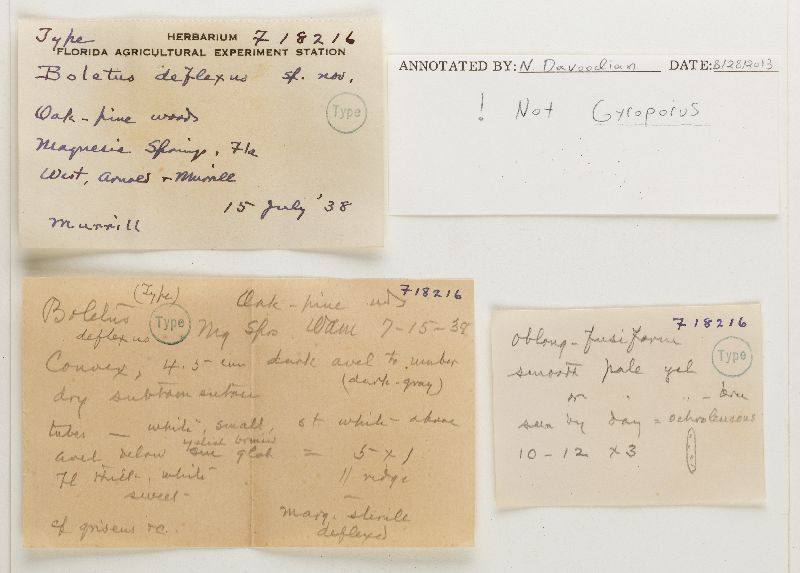 Type HERBARIUM 718216
FLORIDA AGRICULTURAL EXPERIMENT STATION
Boletus deflexus sp. nov.
Type
Oak-pine woods
Magnesia Springs, Fla
West, Arnold & Murrill
15 July '38
Murrill
ANNOTATED BY: N. Davoodian DATE: 8/28/2013
! Not Gyroporus
718216
(Type) Oak-pine wds
Boletus
deflexus Type Mg Spgs. WAM 7-15-38
Convex, 4.5 cm dark avel to umber
(dark-gray)
dry subtomentose
tubes — white, small, st white above
yelish brown
avel below glab = 5 x 1
Fl thick, white // ridge
sweet
Marg. sterile
cf griseus rc. deflexed
718216
oblong-fusiform
Type
smooth pale yel
or " " -brn
seen by day = ochroleucous
10-12 x 3